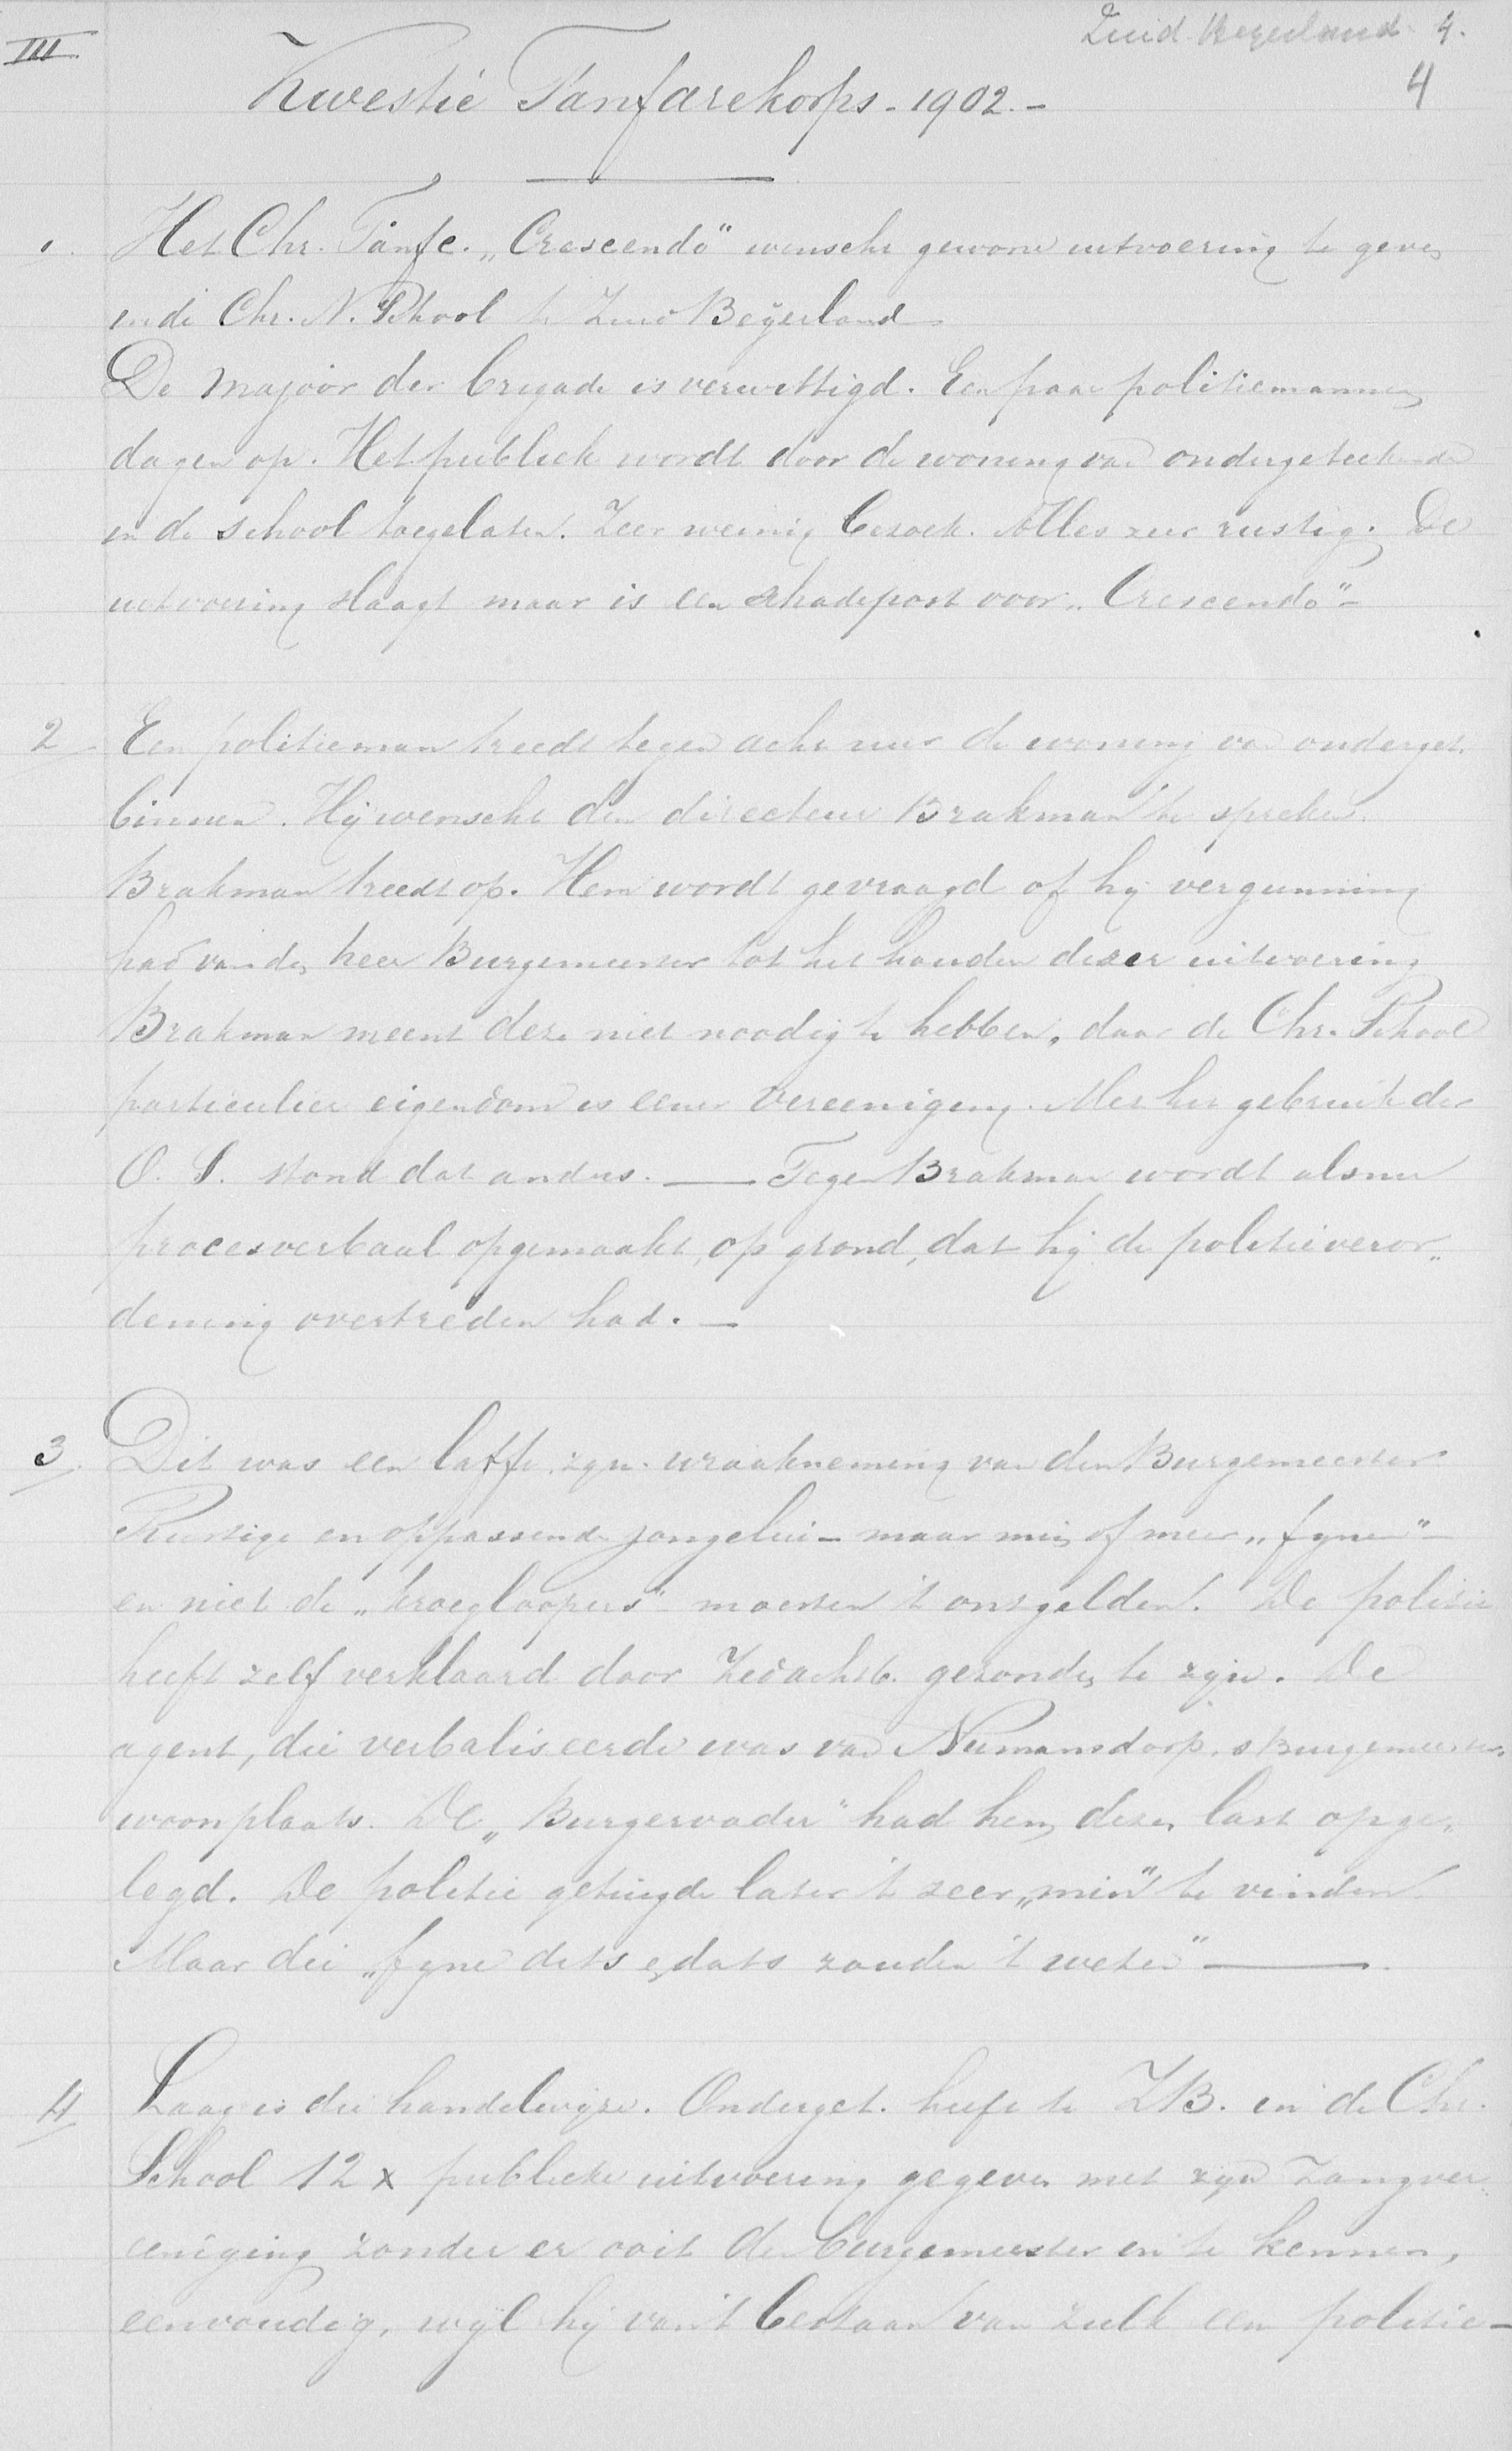 Zuid Beyerland 4.
III
4
Kwestie Fanfarekorps - 1902. -
1. Het Chr. Fanfc. „Crescendo" wenscht gewone uitvoering te geven
in de Chr. N. School te Zuid Beÿerland
De Majoor der brigade is verwittigd. Een paar politiemannen
dagen op. Het publiek wordt door de woning van ondergeteekende
in de school toegelaten. Zeer weinig bezoek. Alles zeer rustig. De
uitvoering slaagt maar is een schadepost voor „Crescendo" -
2 Een politieman treedt tegen acht uur de woning van onderget.
binnen. Hij wenscht den directeur Brakman te spreken.
Brakman treedt op. Hem wordt gevraagd of hij vergunning
had van den heer Burgemeester tot het houden dezer uitvoering
Brakman meent deze niet noodig te hebben, daar de Chr. School
particulier eigendom is eener Vereeniging. Met het gebruik der
O. S. stond dat anders. — Tegen Brakman wordt alsnu
procesverbaal opgemaakt, op grond, dat hij de politieveror„
dening overtreden had. —
3. Dit was een laffe zgn. wraakneming van den Burgemeester
Rustige en oppassende jongelui - maar min of meer „fyne" -
en niet de „kroegloopers" moesten 't ontgelden. De politie
heeft zelf verklaard door Zedachtb. gezonden te zyn. De
agent, die verbaliseerde was van Numansdorp, s Burgemeesters
woonplaats. De „Burgervader" had hem dezen last opge„
legd. De politie getuigde later 't zeer „min" te vinden.
Maar die „fyne dits en dats zouden 't weten" —
4 Laag is die handelwyze. Onderget. heeft te ZB. in de Chr.
School 12 x publieke uitvoering gegeven met zyn Zangver
eeniging zonder er ooit de burgemeester in te kennen,
eenvoudig, wyl hij van 't bestaan van zulk een politie-